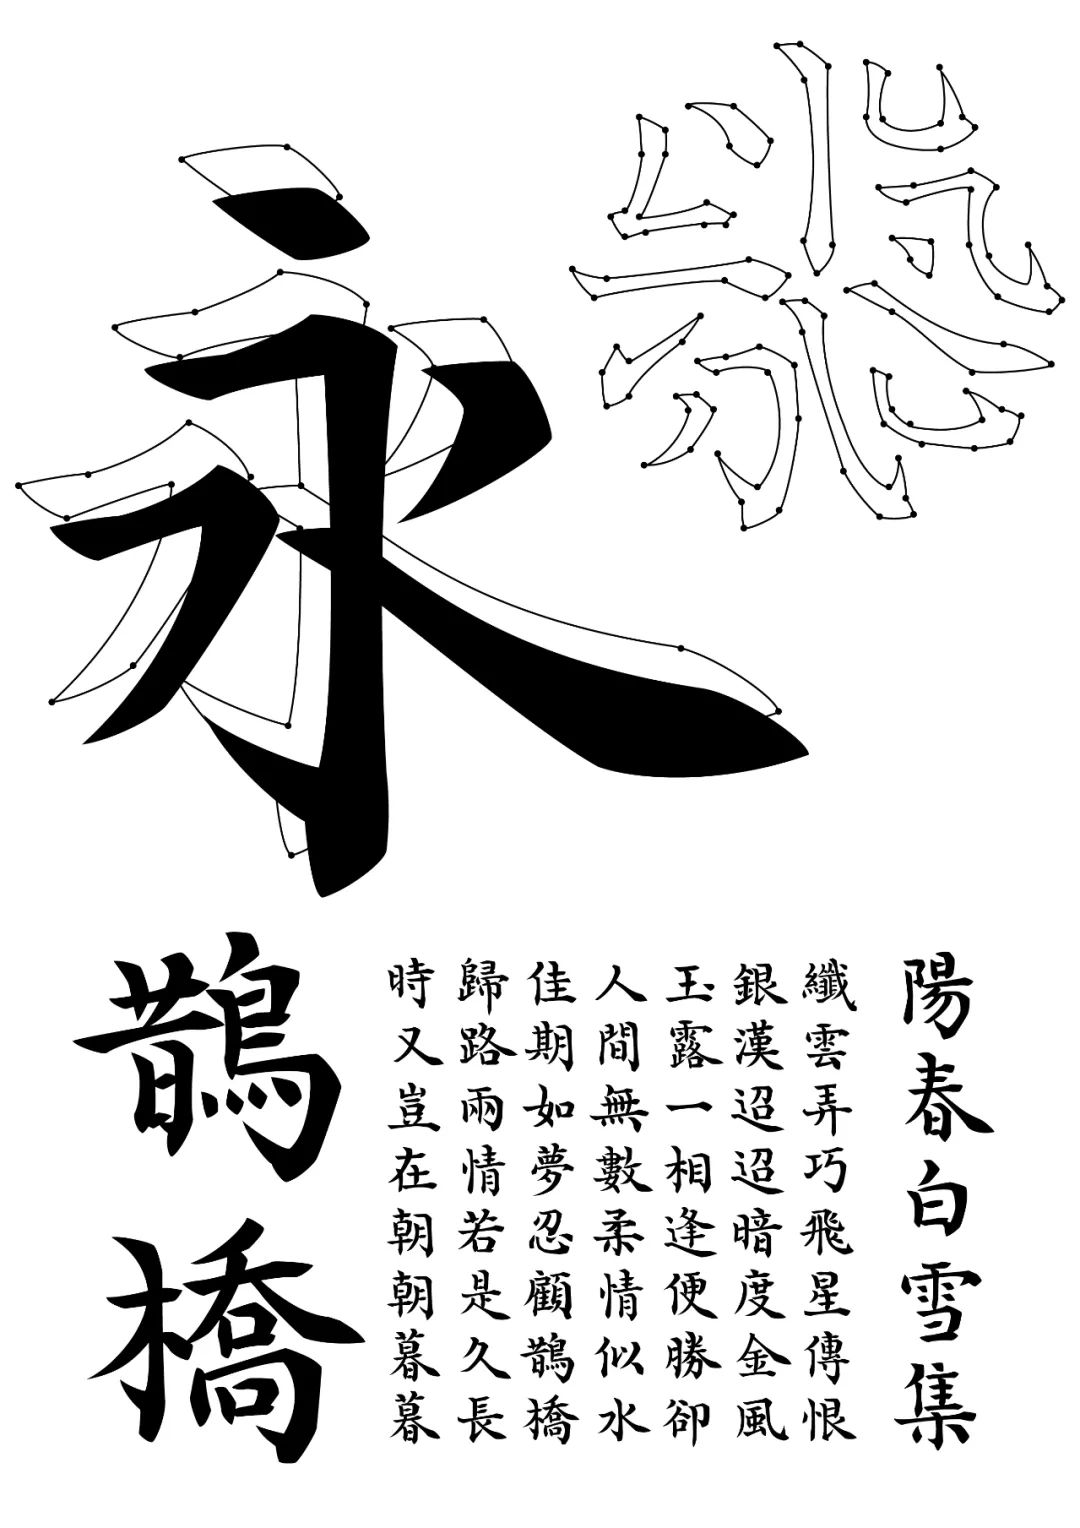 永
陽春白雪集
纖雲弄巧飛星傳恨
銀漢迢迢暗度金風
玉露一相逢便勝卻
人間無數柔情似水
佳期如夢忍顧鵲橋
歸路兩情若是久長
時又豈在朝朝暮暮
鵲橋